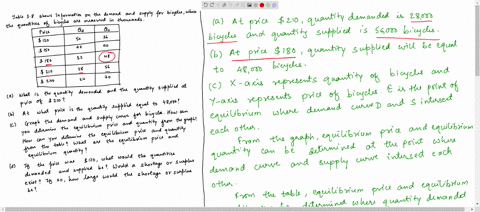 Table 3.8 shows information on the demand and supply for bicycles, where
the quantities of bicycles are measured in thousands.
Price Qd Qs
$120 50 36
$150 40 40
$180 32 48
$210 28 56
$240 24 70
(a) What is the quantity demanded and the quantity supplied at
price of $210?
(b) At what price is the quantity supplied equal to 48,000?
(c) Graph the demand and supply curve for bicycle. How can
you determine the equilibrium price and quantity from the graph?
How can you determine the equilibrium price and quantity
from the table? What are the equilibrium price and
equilibrium quantity?
(d) If the price was $120, what would the quantities
demanded and supplied be? Would a shortage or surplus
exist? If so, how large would the shortage or surplus
be?
(a) At price $210, quantity demanded is 28000
bicycles and quantity supplied is 56000 bicycles.
(b) At price $180, quantity supplied will be equal
to 48,000 bicycles.
(c) X-axis represents quantity of bicycles and
Y-axis represents price of bicycles. E is the point of
equilibrium where demand curve D and S intersect
each other.
From the graph, equilibrium price and equilibrium
quantity can be determined at the point where
demand curve and supply curve intersect each
other.
From the table, equilibrium price and equilibrium
determined where quantity demanded